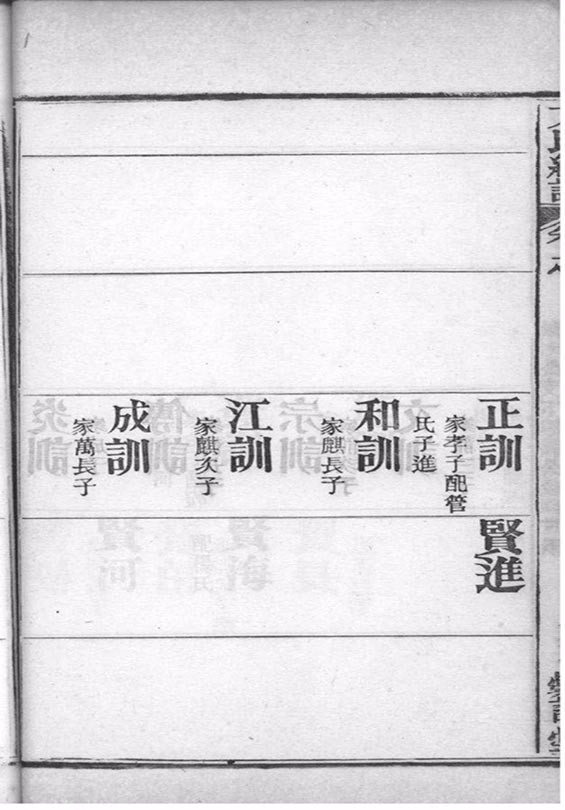 正訓
家孝子配管
氏子進
賢進
和訓
家麒長子
江訓
家麒次子
成訓
家萬長子